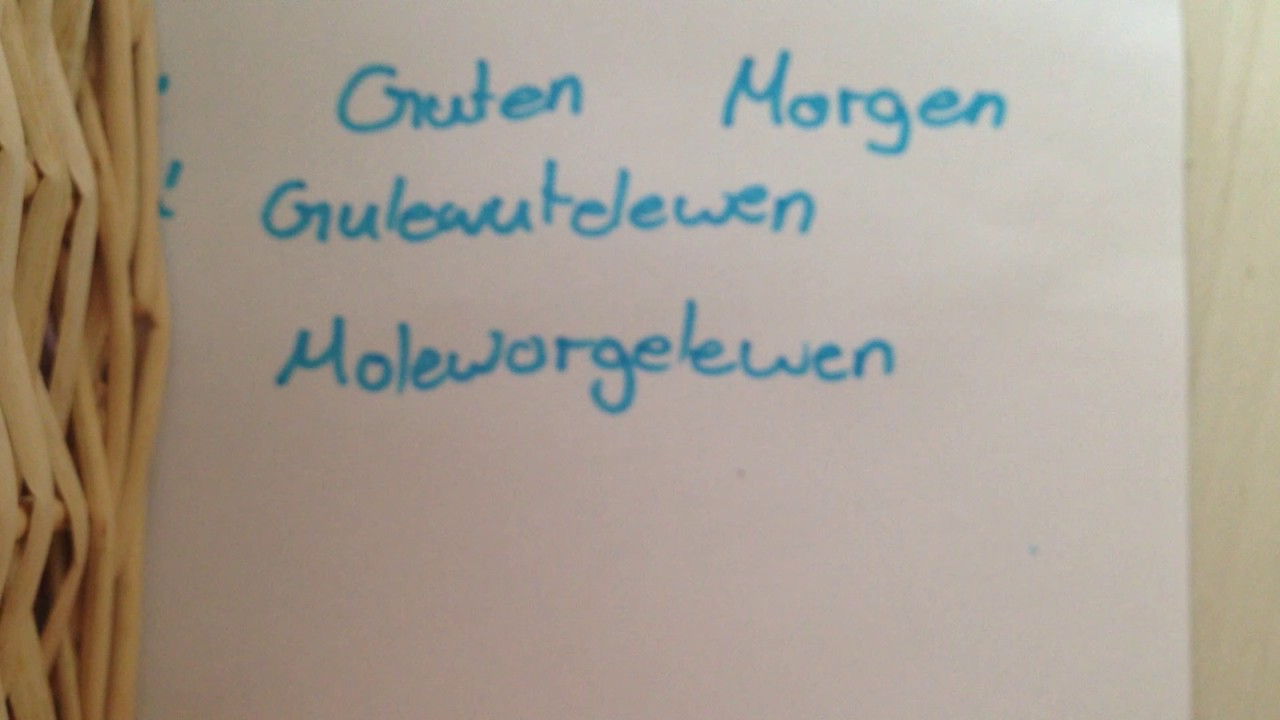 Guten Morgen
Gulewutelewen
Moleworgelewen